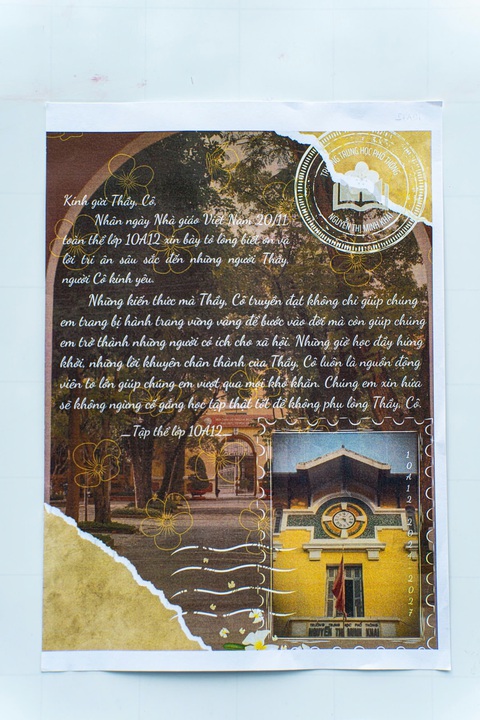 TRƯỜNG TRUNG HỌC PHỔ THÔNG
NGUYỄN THỊ MINH KHAI
Kính gửi Thầy, Cô,
Nhân ngày Nhà giáo Việt Nam 20/11
toàn thể lớp 10A12 xin bày tỏ lòng biết ơn và
lời tri ân sâu sắc đến những người Thầy,
người Cô kính yêu.
Những kiến thức mà Thầy, Cô truyền đạt không chỉ giúp chúng
em trang bị hành trang vững vàng để bước vào đời mà còn giúp chúng
em trở thành những người có ích cho xã hội. Những giờ học đầy hứng
khởi, những lời khuyên chân thành của Thầy, Cô luôn là nguồn động
viên to lớn giúp chúng em vượt qua mọi khó khăn. Chúng em xin hứa
sẽ không ngừng cố gắng học tập thật tốt để không phụ lòng Thầy, Cô.
_Tập thể lớp 10A12_
10A12 2024 2027
TRƯỜNG TRUNG HỌC PHỔ THÔNG
NGUYỄN THỊ MINH KHAI